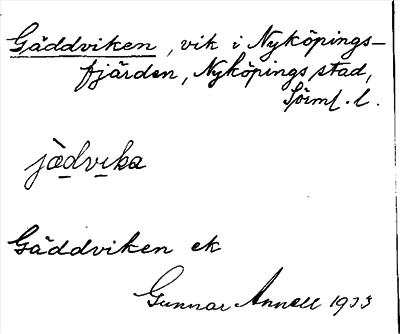 Gäddviken, vik i Nyköpings-
fjärden, Nyköpings stad,
Söiml. l.
jàdvika
Gäddviken ek
Gunnar Annell 1933